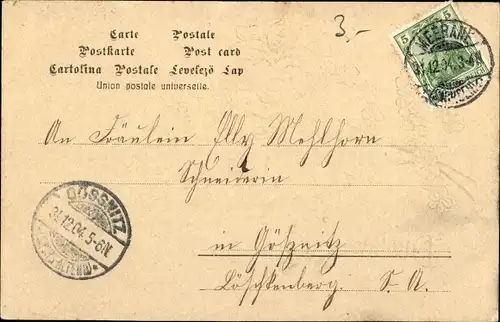 3,-
Carte Postale
Postkarte Post card
Cartolina Postale Levelező Lap
Union postale universelle.
5 5
MEERANE
31.12.04. 3-4N
(SACHSEN)
An Fräulein Elly Mehlhorn
Schneiderin
in Gößnitz
Löschkenberg. S. A.
GÖSSNITZ
31.12.04. 5-6N.